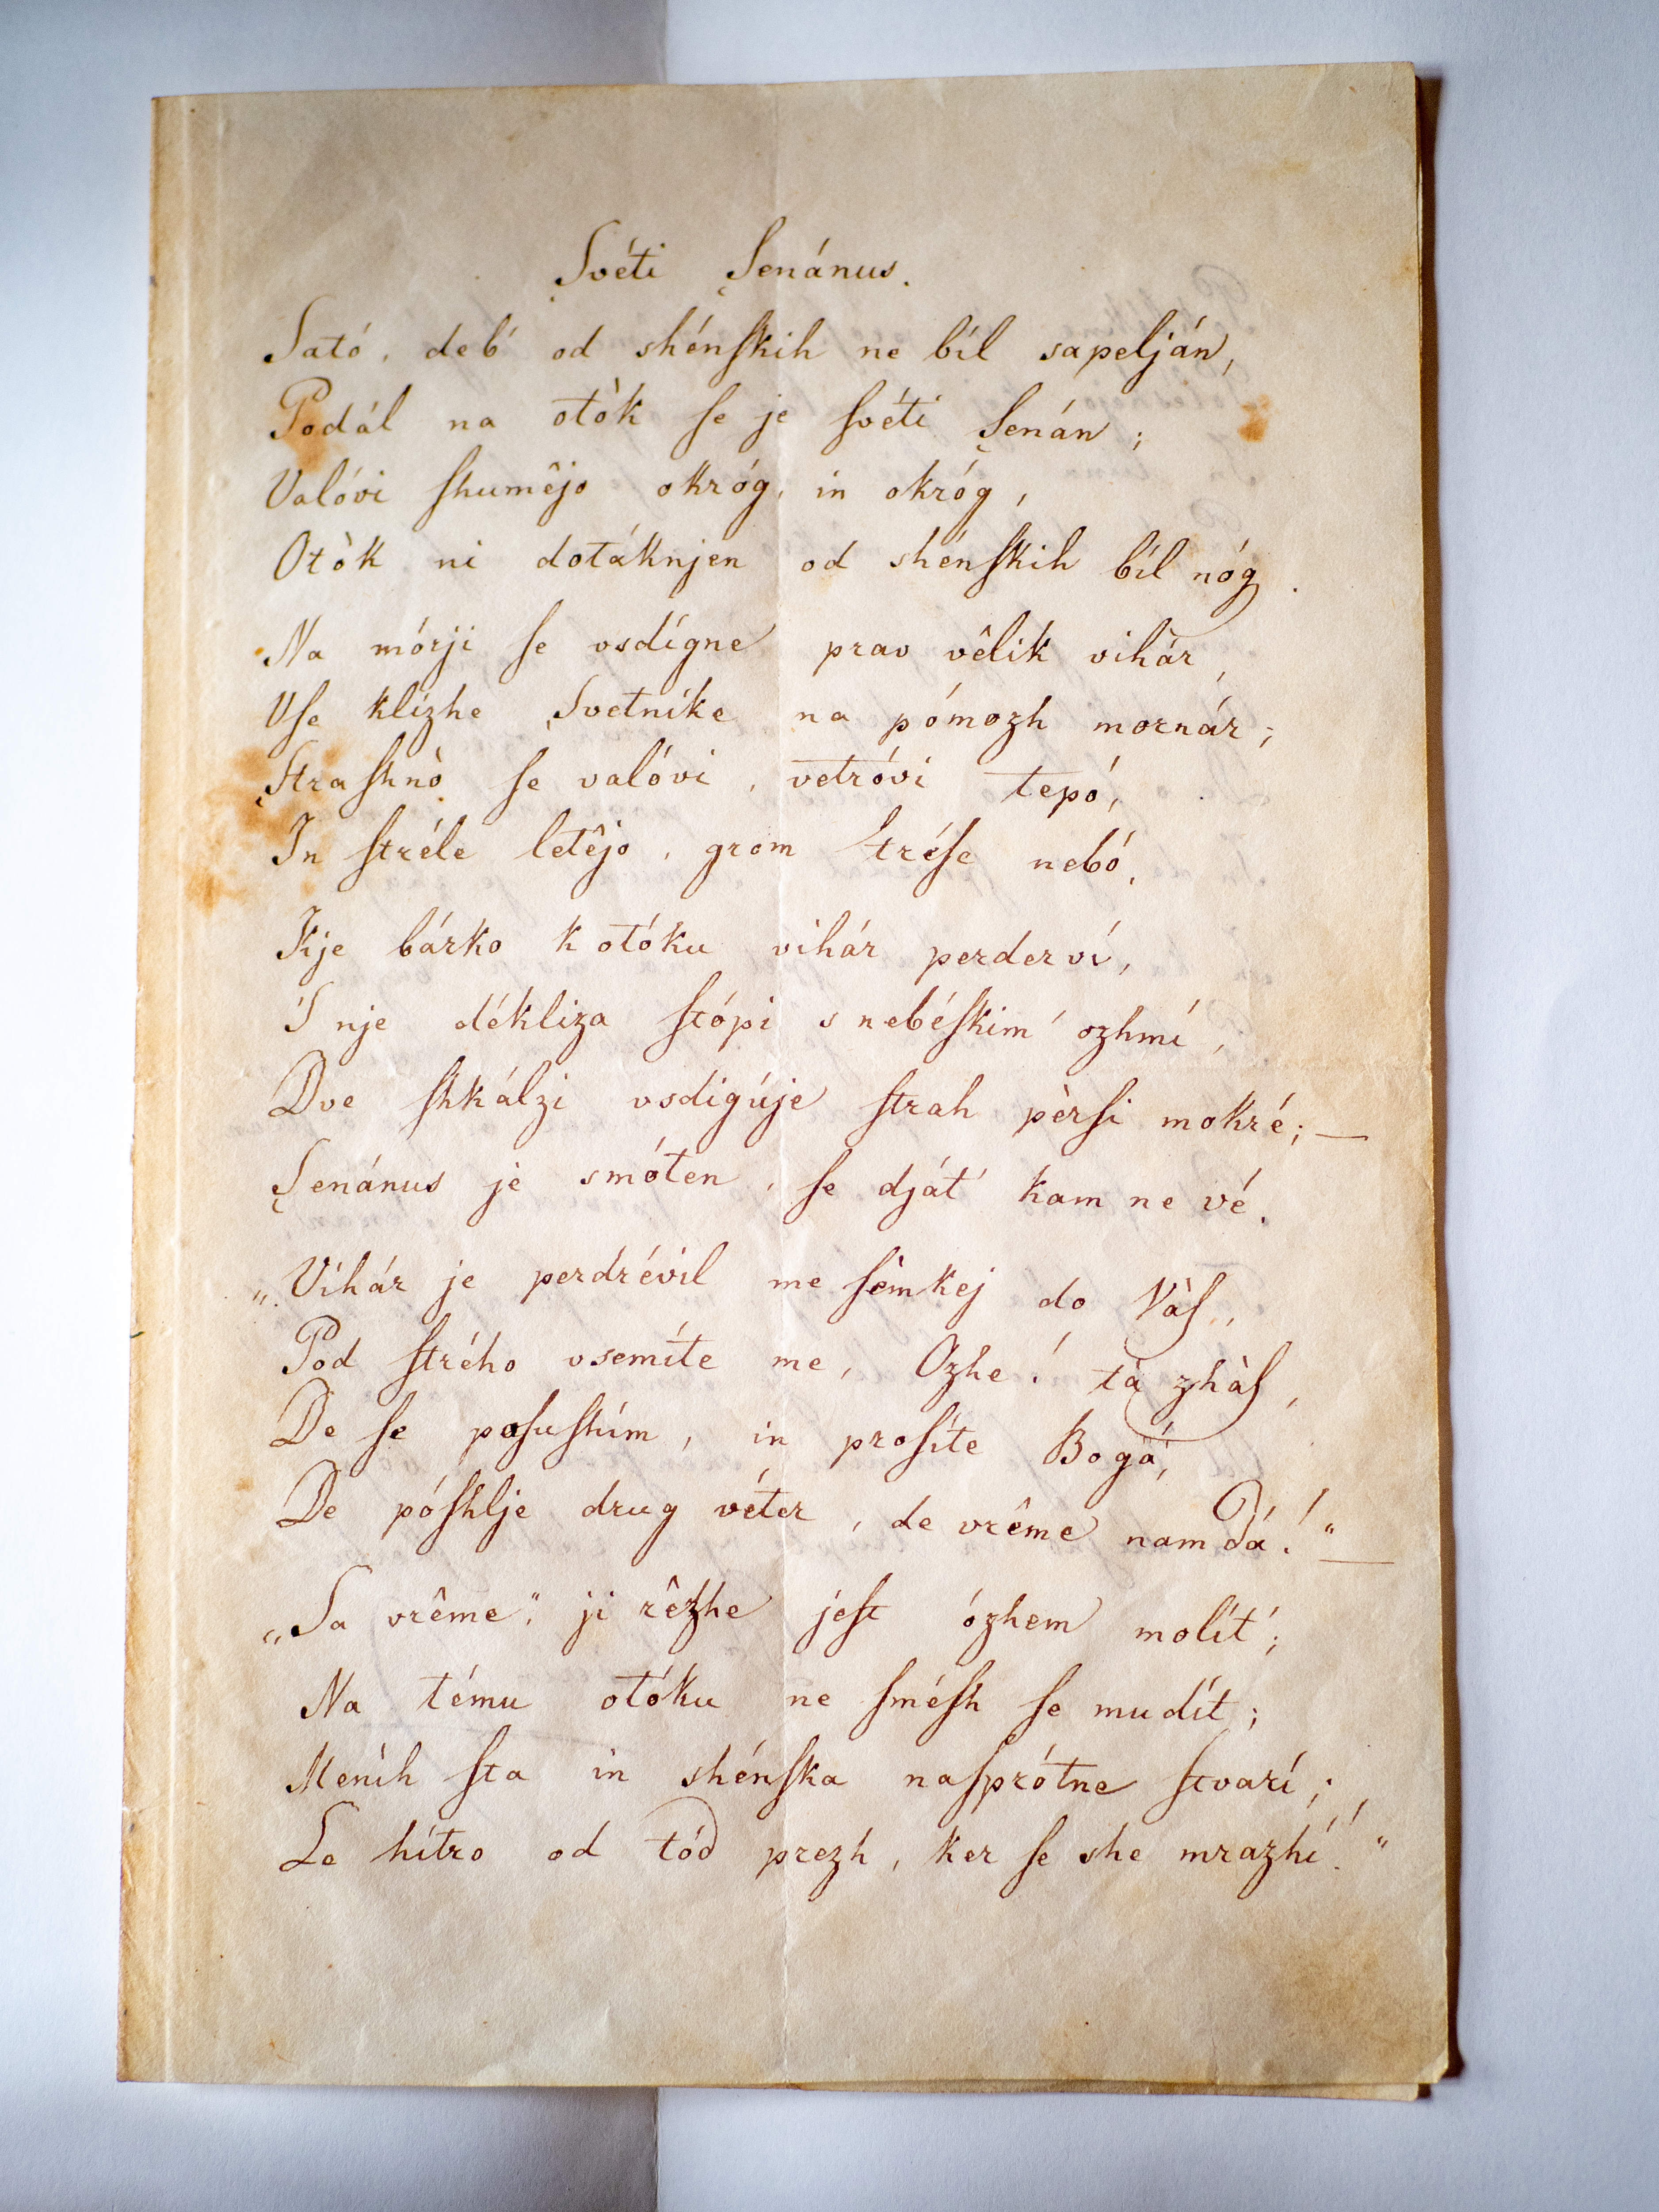 Svéti Senánus.
Sató, deb' od shénſkih ne bíl sapelján,
Podál na otòk ſe je ſvéti Senán;
Valóvi ſhumêjo okróg, in okróg,
Otòk ni dotáknjen od shénſkih bíl nóg.
Na mórji ſe vsdígne prav vêlik vihár,
Vſe klízhe Svetníke na pómozh mornár;
Straſhnò ſe valóvi, vetróvi tepó,
In ſtréle letêjo, grom tréſe nebó.
Kje bárko k otóku vihár perderví,
'S nje dékliza ſtópi s nebéſkim' ozhmí,
Dve ſhkálzi vsdigúje ſtrah pèrſi mokré; —
Senánus je smóten, ſe dját' kam ne vé.
„Vihár je perdrévil me ſèmkej do Vàſ,
Pod ſtrého vsemíte me, Ozhe! tà zhàſ,
De ſe poſuſhím, in proſíte Bogá,
De póſhlje drug véter, de vrême nam dá!“ —
„Sa vrême“, ji rêzhe jeſt ózhem molít';
Na tému otóku ne ſméſh ſe mudít;
Menìh ſta in shénſka naſprótne ſtvarí;
Le hítro od tód prezh, ker ſe she mrazhí!“